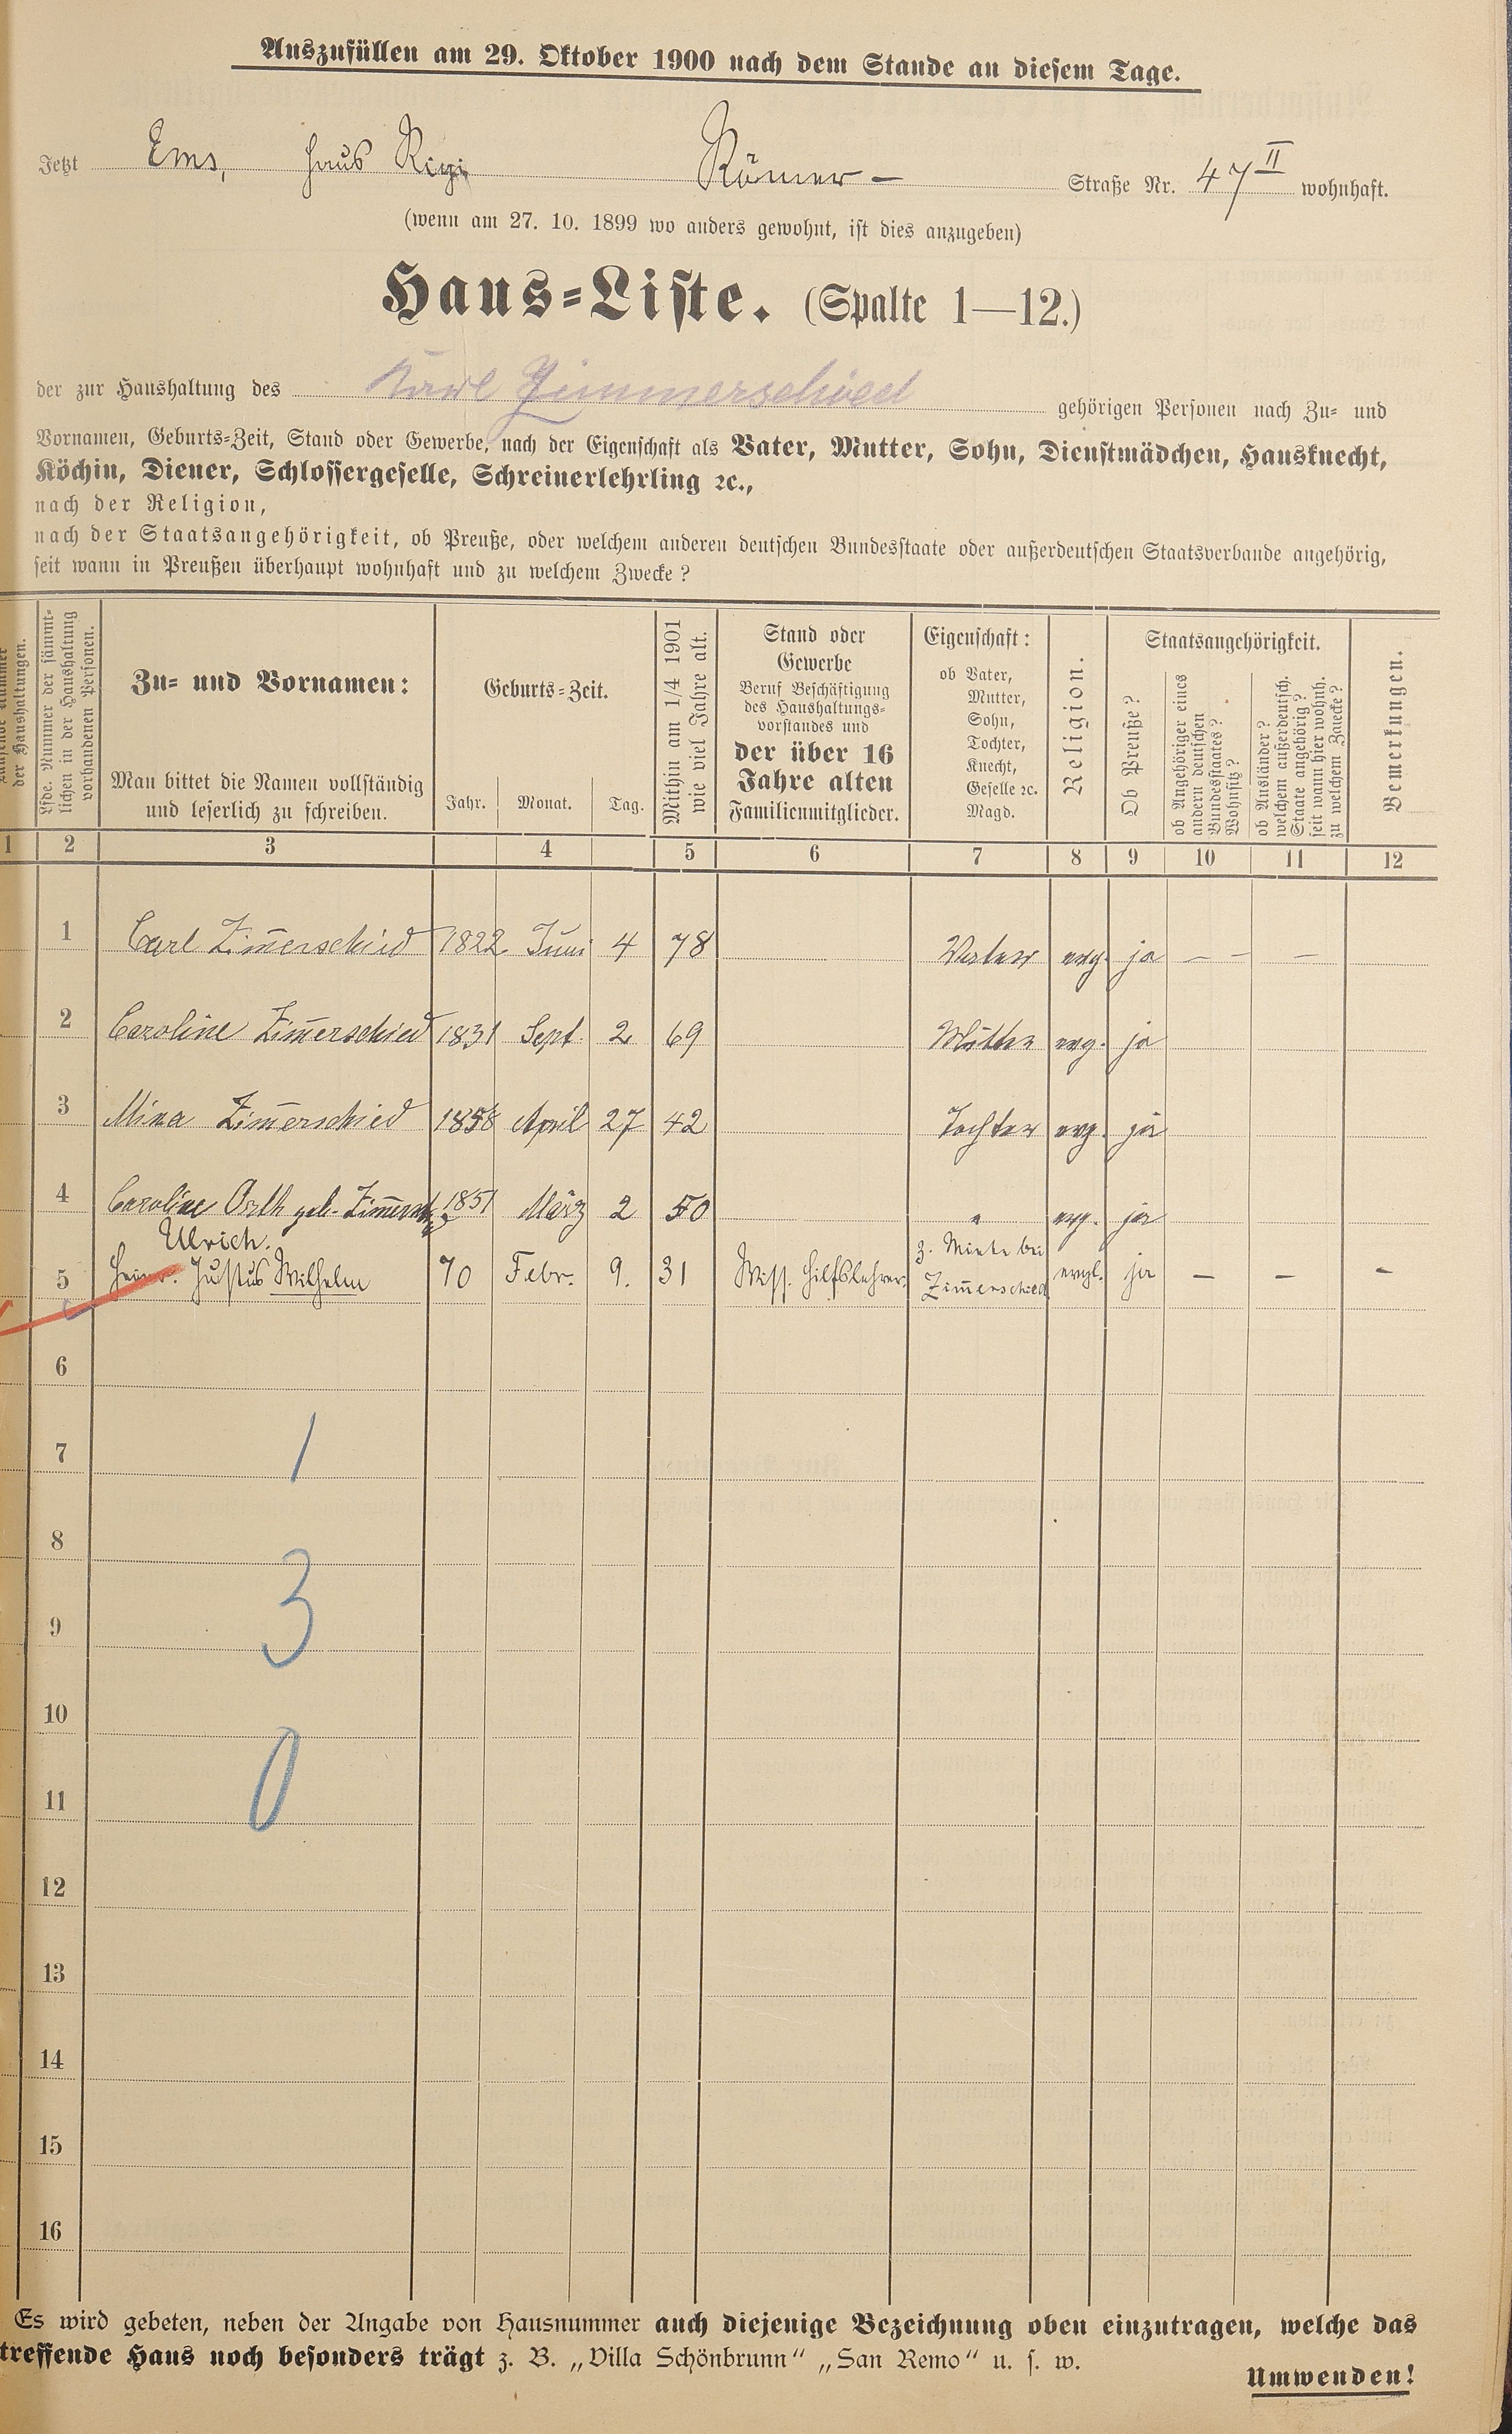 Auszufüllen am 29. Oktober 1900 nach dem Stande an diesem Tage.
Jetzt Ems, Haus Rigi Römer- Straße Nr. 47 II wohnhaft.
(wenn am 27. 10. 1899 wo anders gewohnt, ist dies anzugeben)
Haus-Liste. (Spalte 1—12.)
der zur Haushaltung des Karl Zimmerschied gehörigen Personen nach Zu- und
Vornamen, Geburts-Zeit, Stand oder Gewerbe, nach der Eigenschaft als Vater, Mutter, Sohn, Dienstmädchen, Hausknecht,
Köchin, Diener, Schlossergeselle, Schreinerlehrling ꝛc.,
nach der Religion,
nach der Staatsangehörigkeit, ob Preuße, oder welchem anderen deutschen Bundesstaate oder außerdeutschen Staatsverbande angehörig,
seit wann in Preußen überhaupt wohnhaft und zu welchem Zwecke?
Nummer
der Haushaltungen.
Lfde. Nummer der sämmt-
lichen in der Haushaltung
vorhandenen Personen.
Zu- und Vornamen:
Man bittet die Namen vollständig
und leserlich zu schreiben.
Geburts-Zeit.
Jahr. Monat. Tag.
Mithin am 1/4 1901
wie viel Jahre alt.
Stand oder
Gewerbe
Beruf Beschäftigung
des Haushaltungs-
vorstandes und
der über 16
Jahre alten
Familienmitglieder.
Eigenschaft:
ob Vater,
Mutter,
Sohn,
Tochter,
Knecht,
Geselle ꝛc.
Magd.
Religion.
Staatsangehörigkeit.
Ob Preuße?
ob Angehöriger eines
andern deutschen
Bundesstaates?
Wohnsitz?
ob Ausländer?
welchem außerdeutsch.
Staate angehörig?
seit wann hier wohnh.
zu welchem Zwecke?
Bemerkungen.
1 2 3 4 5 6 7 8 9 10 11 12
1 Carl Zim̄erschied 1822 Juni 4 78 Vater evg. ja — — —
2 Caroline Zim̄erschied 1831 Sept. 2 69 Mutter evg. ja
3 Mina Zim̄erschied 1858 April 27 42 Tochter evg. ja
4 Caroline Orth geb. Zim̄ersch 1851 März 2 50 " evg. ja
Ulrich.
5 Heinr. Justus Wilhelm 70 Febr. 9. 31 Wiss. Hilfslehrer. z. Miete bei
Zim̄erschied evgl. ja — — —
6
7
1
8
3
9
10
0
11
12
13
14
15
16
Es wird gebeten, neben der Angabe von Hausnummer auch diejenige Bezeichnung oben einzutragen, welche das
treffende Haus noch besonders trägt z. B. „Villa Schönbrunn“ „San Remo“ u. s. w.
Umwenden!